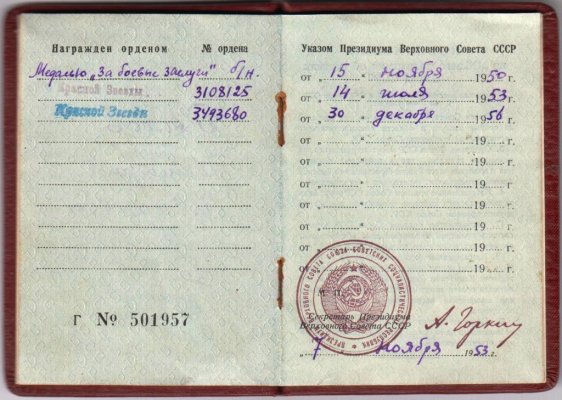 Награжден орденом № ордена
Медалью „За боевые заслуги" б/н.
Красной Звезды 3108125
Красной Звезды 3493680
Г № 501957
Указом Президиума Верховного Совета СССР
от „ 15 " ноября 1950 г.
от „ 14 " июля 1953 г.
от „ 30 " декабря 1956 г.
от „ " 19 г.
от „ " 19 г.
от „ " 19 г.
от „ " 19 г.
от „ " 19 г.
от „ " 19 г.
М. П.
Секретарь Президиума
Верховного Совета СССР
А. Горкин
„ 7 " ноября 1953 г.